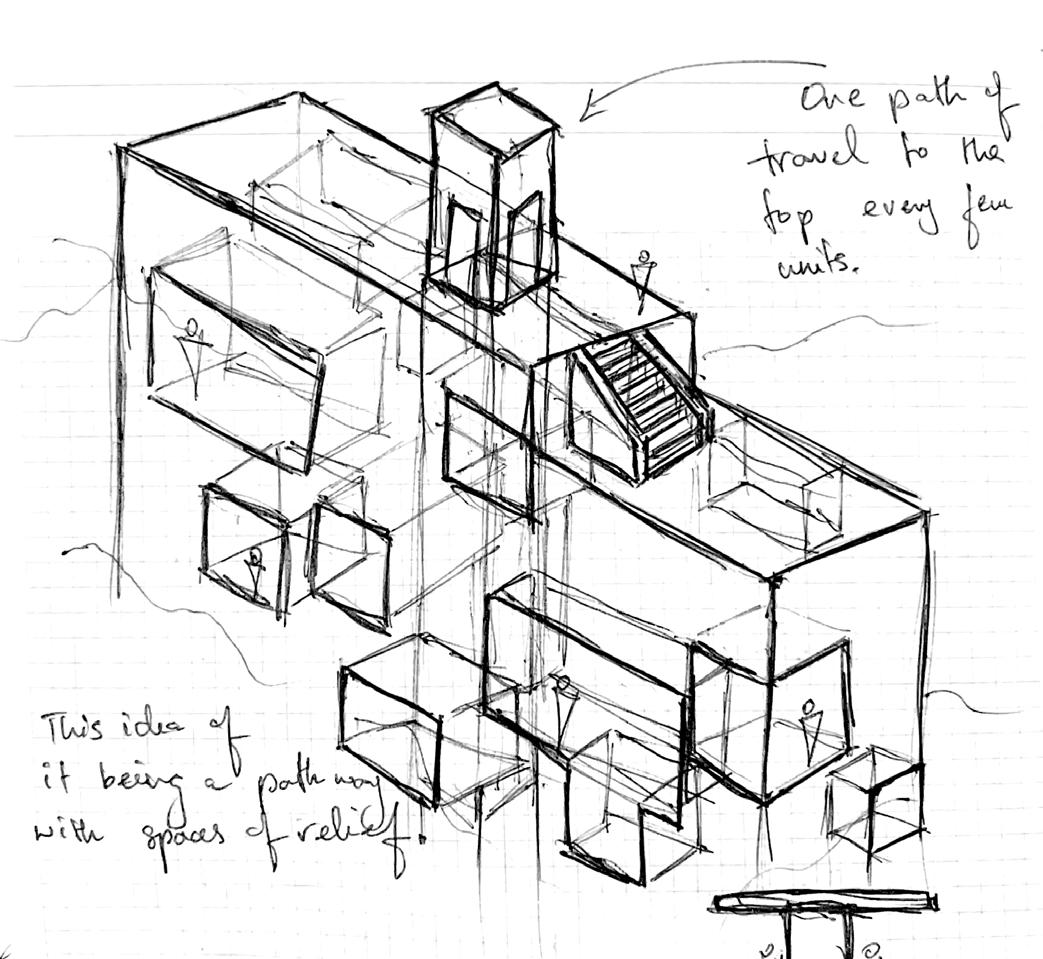 One path of
travel to the
top every few
units.
This idea of
it being a pathway
with spaces of relief.